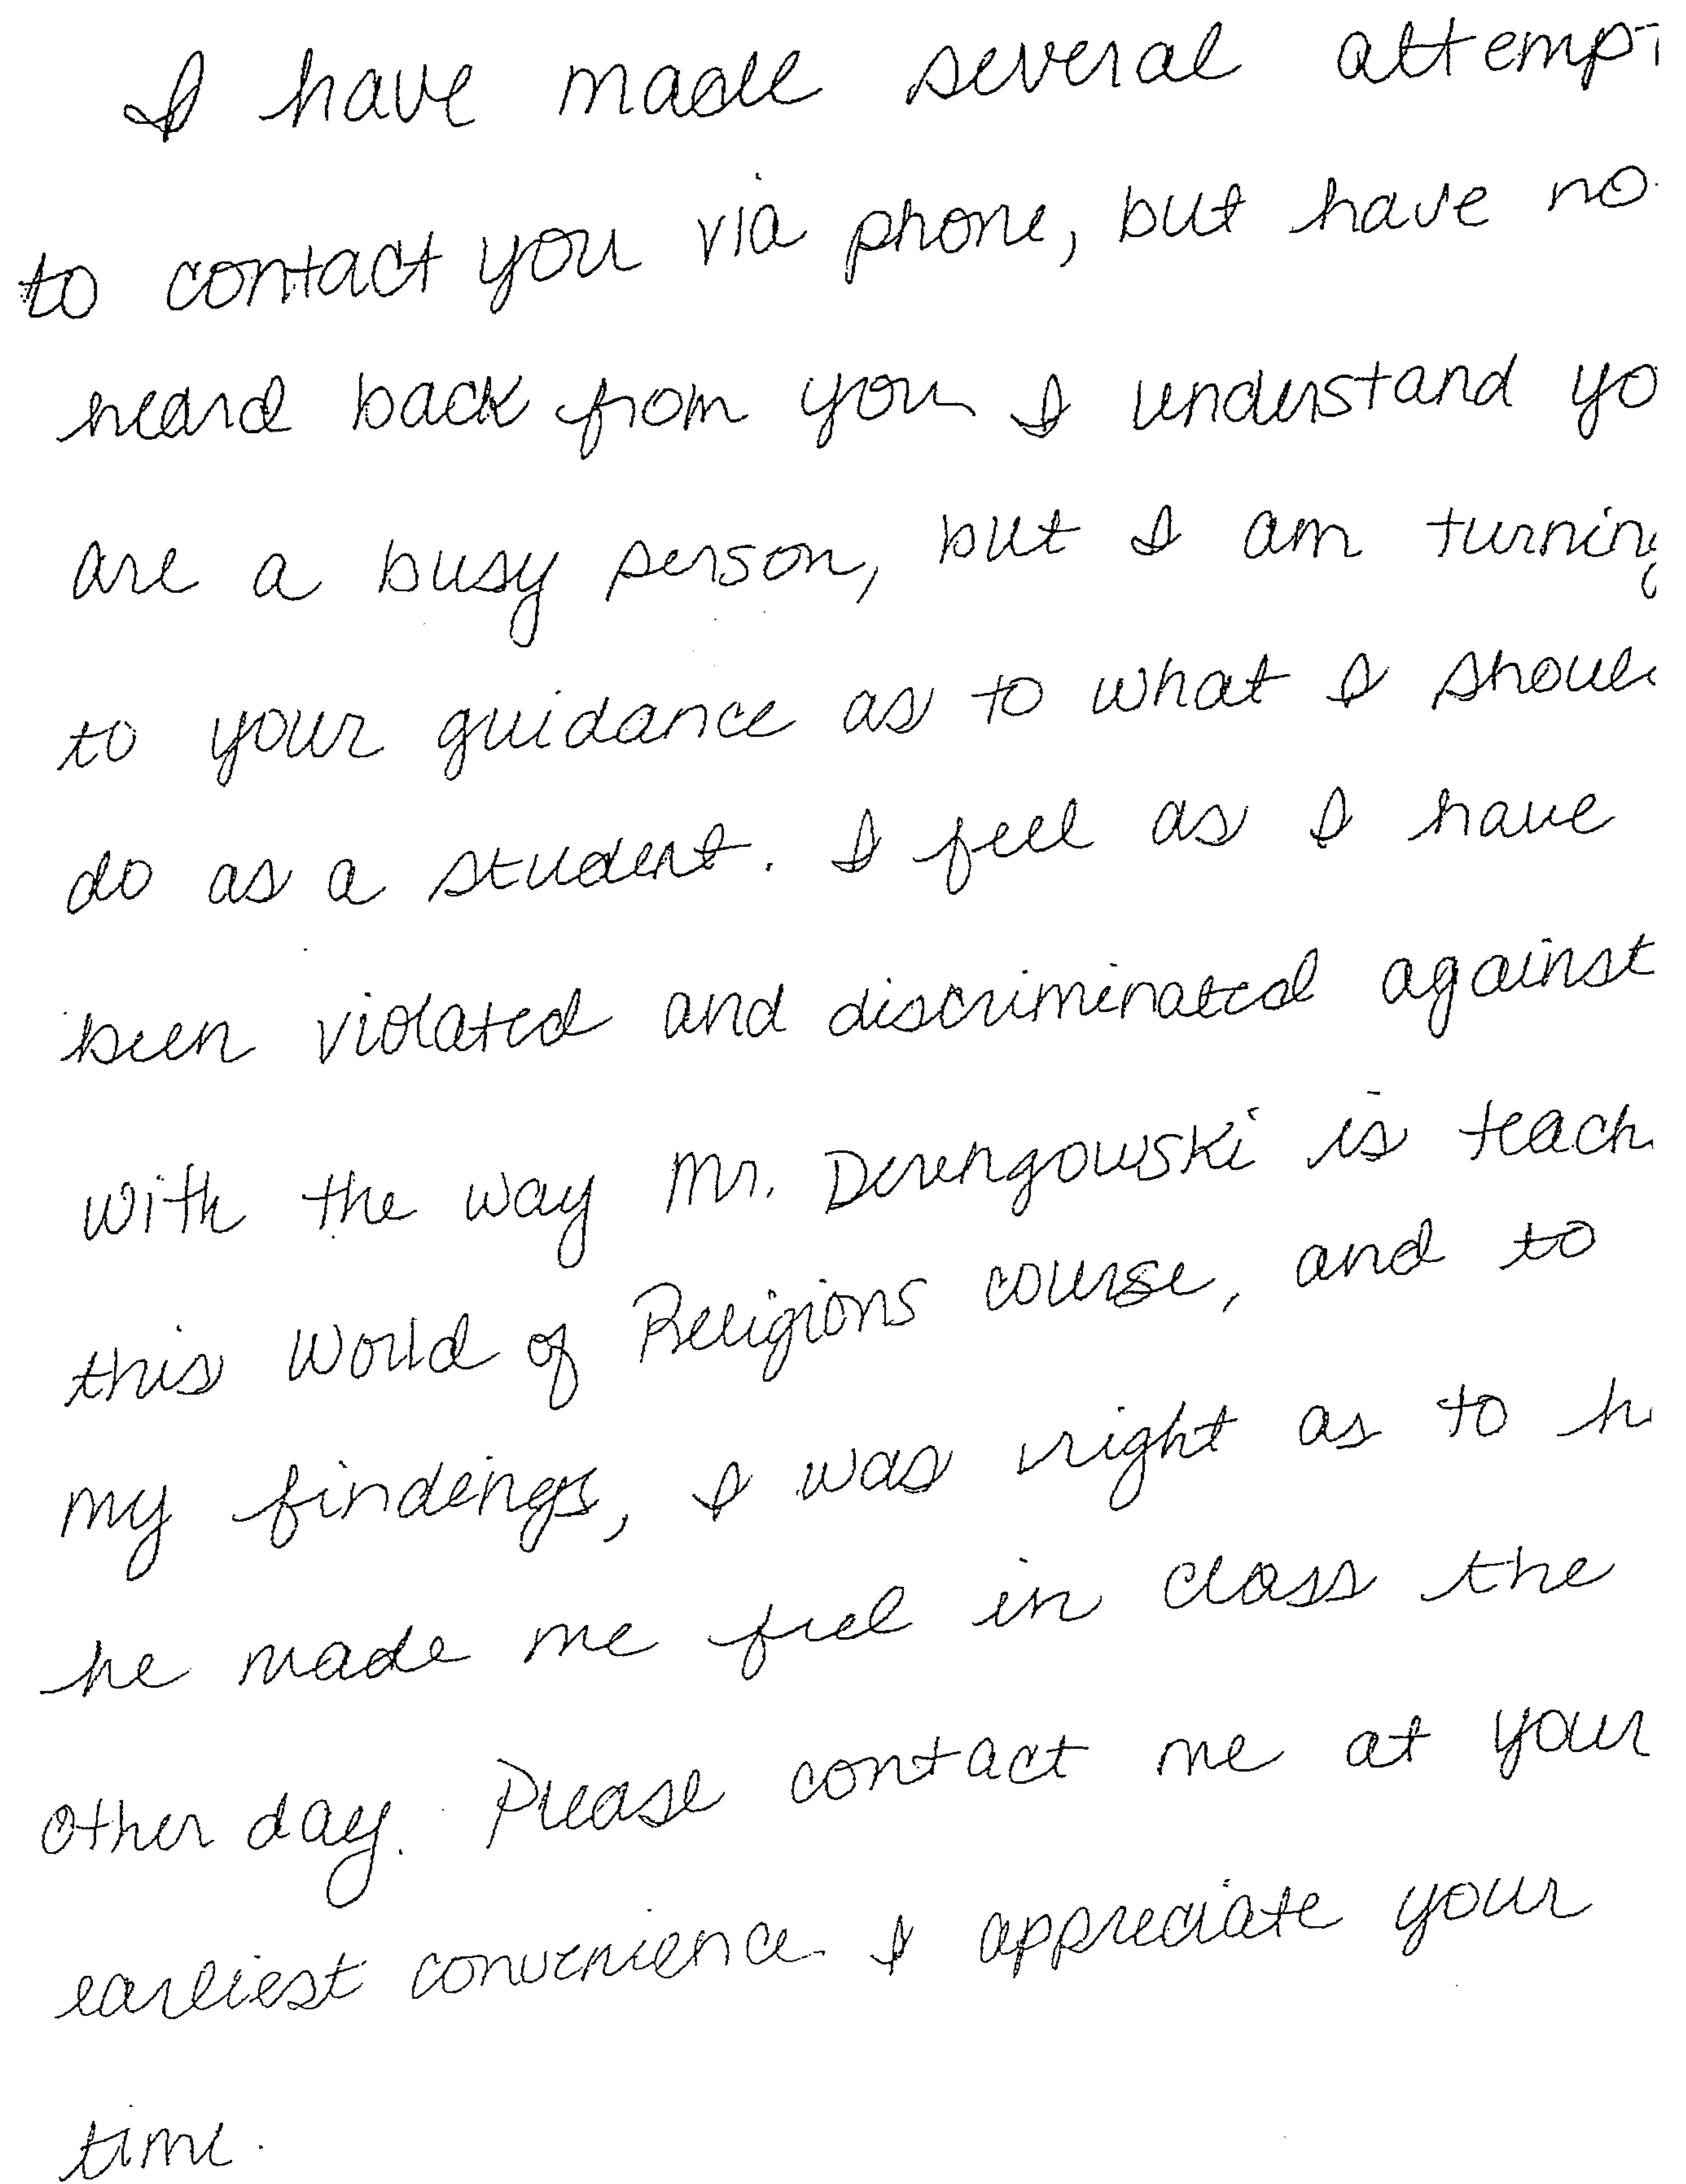 I have made several attempt
to contact you via phone, but have no
heard back from you I understand yo
are a busy person, but I am turning
to your guidance as to what I shoul
do as a student. I feel as I have
been violated and discriminated against
with the way Mr. Derengowski is teach
this World of Religions course, and to
my findings, I was right as to h
he made me feel in class the
other day. Please contact me at your
earliest convenience. I appreciate your
time.